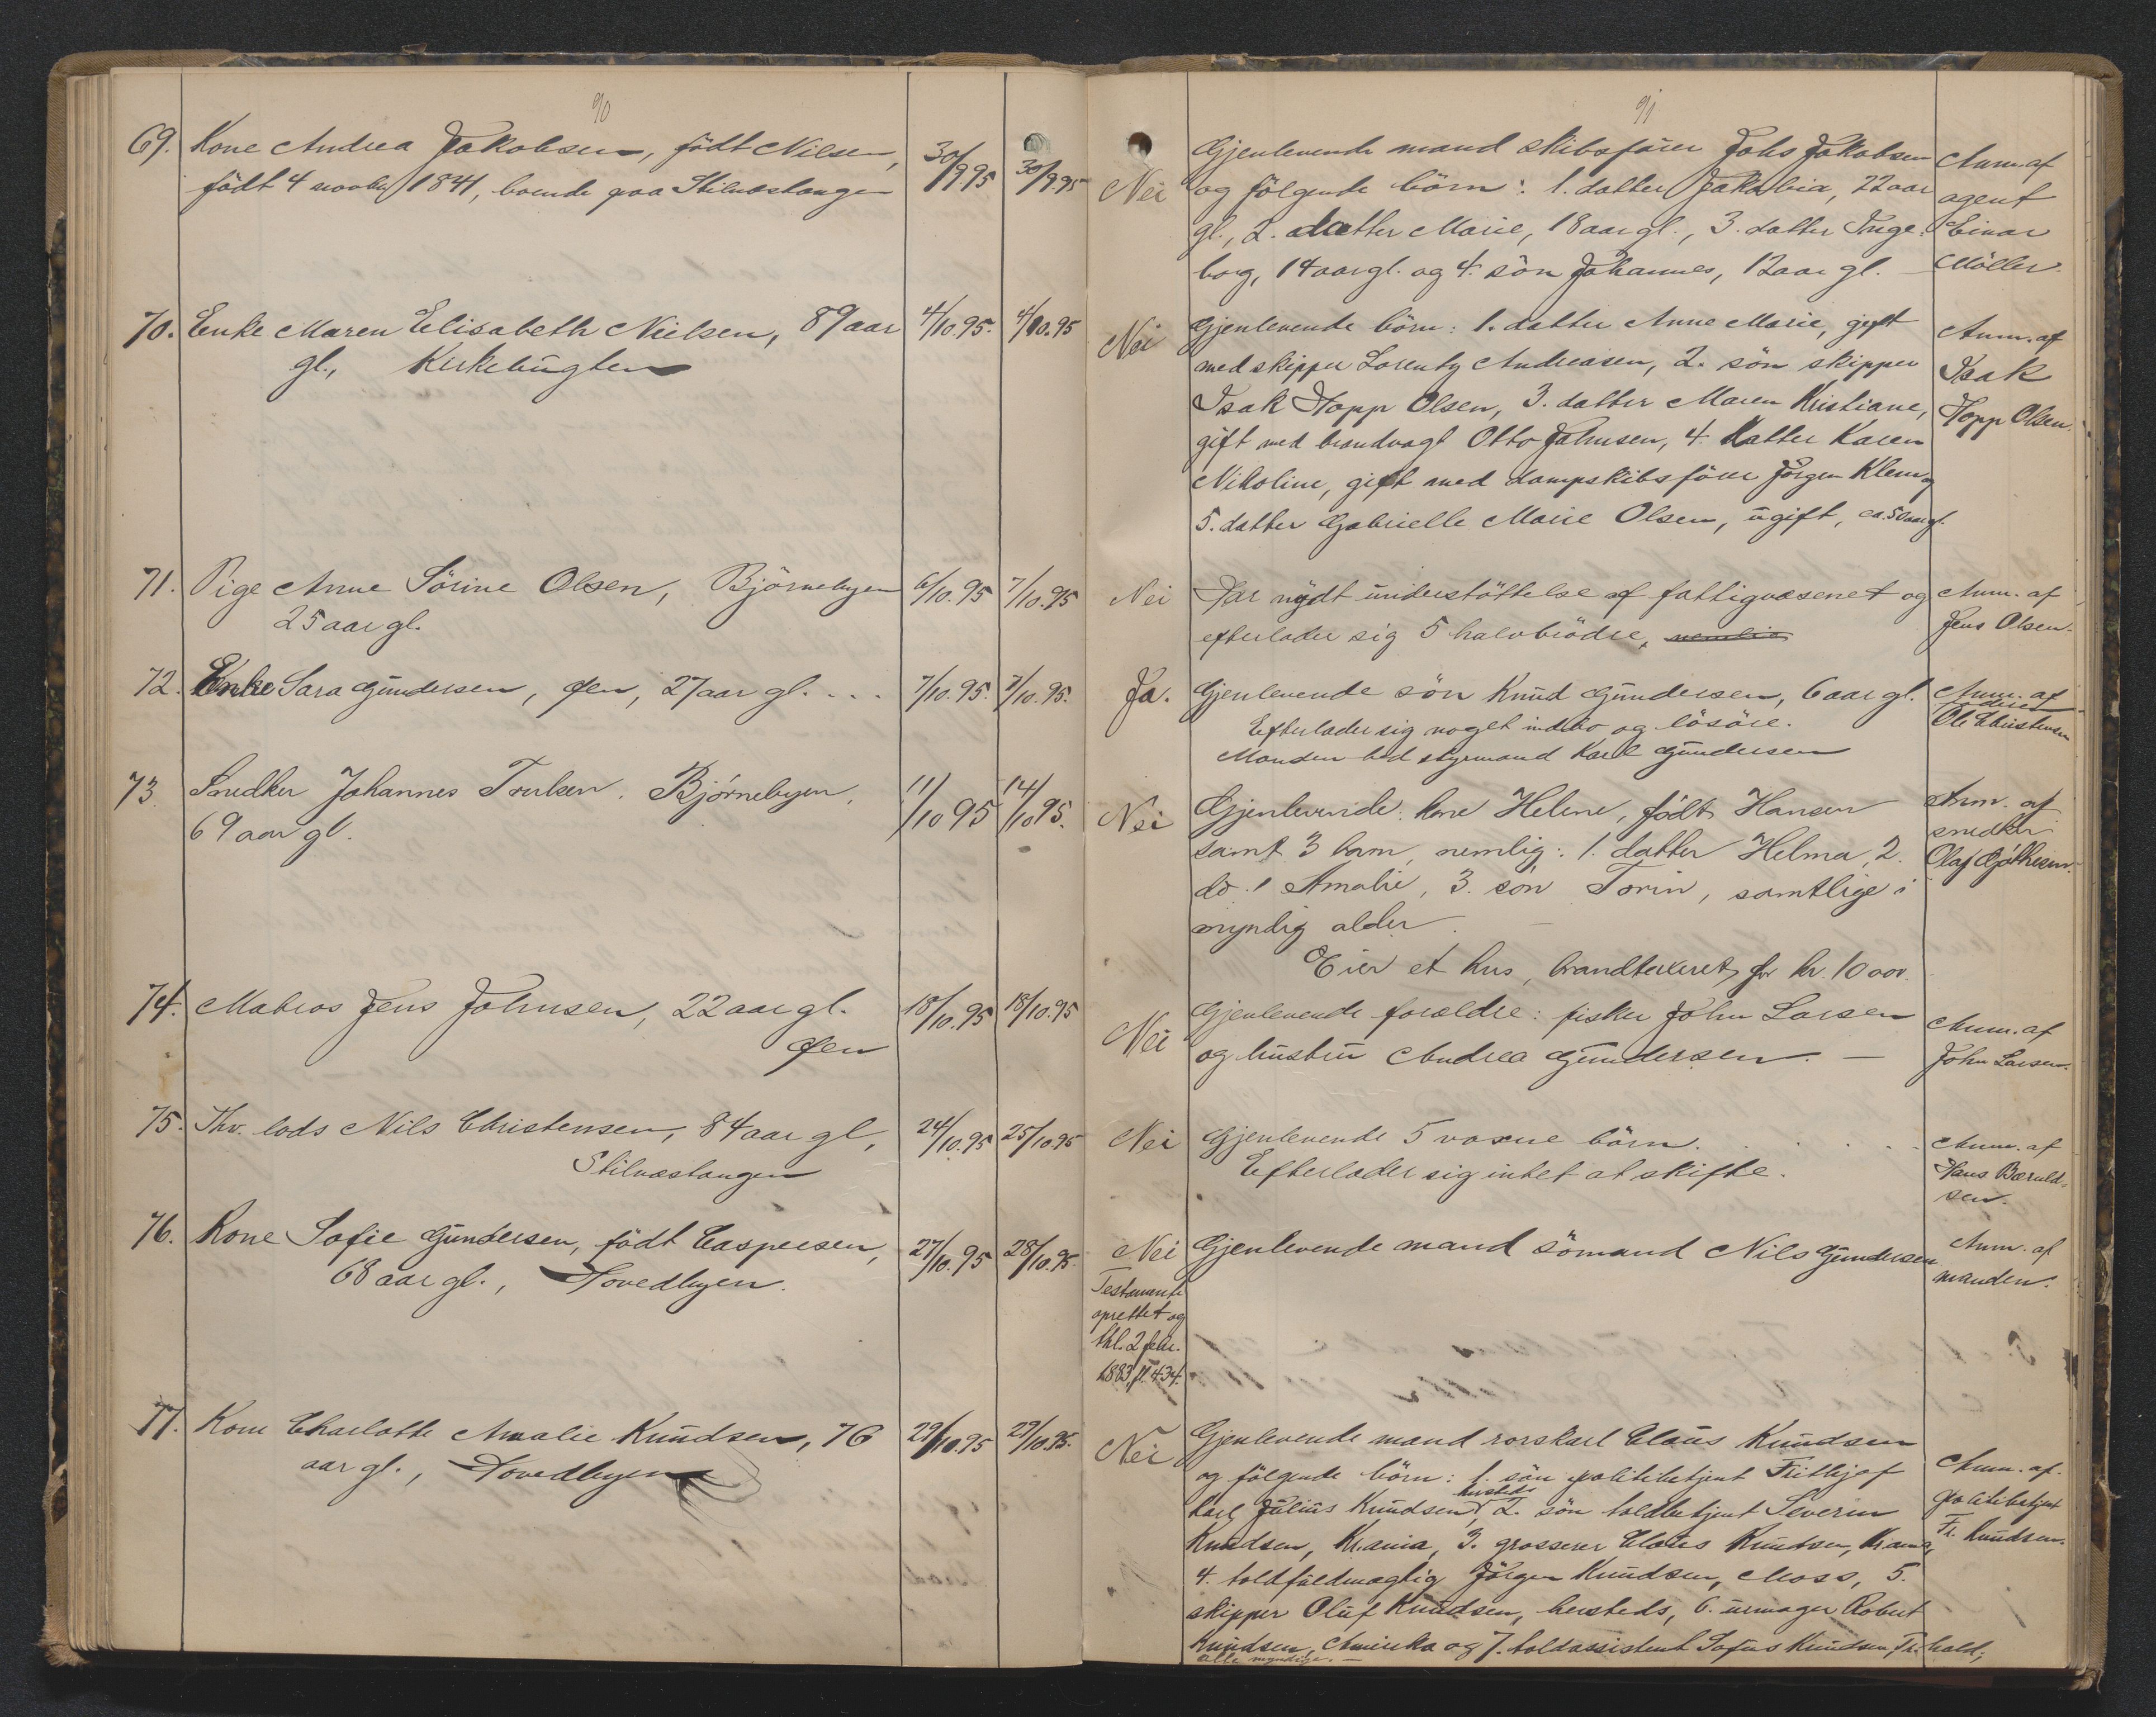 90
69. Kone Andrea Jakobsen, födt Nilsen, 30/9.95 30/9.95
födt 4 novbr 1841, boende paa Stilnæstangen
70. Enke Maren Elisabeth Nielsen, 89 aar 4/10.95. 4/10.95
gl., Kirkebugten
71. Pige Anne Sörine Olsen, Björnebyen 6/10.95 7/10.95
25 aar gl.
72. Enke Sara Gundersen, Øen, 27 aar gl. . . . 7/10.95. 7/10.95.
73. Snedker Johannes Trulsen. Bjørnebyen, 11/10 95 14/10 95.
69 aar gl.
74. Matros Jens Johnsen, 22 aar gl. 18/10.95 18/10.95
Øen
75. Fhv. lods Nils Christensen, 84 aar gl, 24/10.95 25/10.95
Stilnæstangen
76. Kone Sofie Gundersen, födt Caspersen, 27/10.95 28/10.95.
68 aar gl., Hovedbyen.
77. Kone Charlotte Amalie Knudsen, 76 29/10.95 29/10.95.
aar gl., Hovedbyen
91
Gjenlevende mand skibsförer Johs Jakobsen Anm. af
Nei og fölgende börn: 1. datter Jakobia, 22 aar agent
gl., 2. datter Marie, 18 aar gl., 3. datter Inge- Einar
borg, 14 aar gl. og 4. sön Johannes, 12 aar gl. Möller.
Nei Gjenlevende börn: 1. datter Anne Marie, gift Anm. af
med skipper Lorentz Andreasen, 2. sön skipper Isak
Isak Hopp Olsen, 3. datter Maren Kristiane, Hopp Olsen.
gift med brandvagt Otto Johnsen, 4. datter Karen
Nikoline, gift med dampskibsförer Jörgen Klem og
5. datter Gabrielle Marie Olsen, ugift, ca. 50 aar gl.
Nei Har nydt understöttelse af fattigvæsenet og Anm. af
efterlader sig 5 halvbrödre, nemlig Jens Olsen.
Ja. Gjenlevende sön Knud Gundersen, 6 aar gl. Anm. af
faderen
Efterlader sig noget indbo og lösöre. Ole Christensen
Manden hed styrmand Karl Gundersen
Nei Gjenlevende: kone Helene, født Hansen Anm. af
samt 3 børn, nemlig: 1. datter Helma, 2. snedker
do. Amalie, 3. søn Torin, samtlige i Olaf
myndig alder.
Eier et hus, brandtaxeret for kr. 10 000.
Nei Gjenlevende forældre: fisker John Larsen Anm. af
og hustru Andrea Gundersen. — John Larsen.
Nei Gjenlevende 5 voxne börn. . . . Anm. af
Efterlader sig intet at skifte. Hans Bæruld-
sen.
Nei Gjenlevende mand sömand Nils Gundersen Anm. af
manden.
Testamente
oprettet og
thl. 2 febr.
1883, fl. 434.
Nei Gjenlevende mand rorskarl Claus Knudsen
og fölgende börn: 1. sön politibetjent Frithjof Anm. af.
hersteds
Karl Julius Knudsen, 2. sön toldbetjent Severin politibetjent
Knudsen, Kr.ania, 3. grosserer Claus Knudsen, Kr.ania, Fr. Knudsen.
4. toldfuldmægtig Jörgen Knudsen, Moss, 5.
skipper Oluf Knudsen, hersteds, 6. urmager Robert
Knudsen, Amerika og 7. toldassistent Sofus Knudsen, Fr.hald,
alle myndige. —